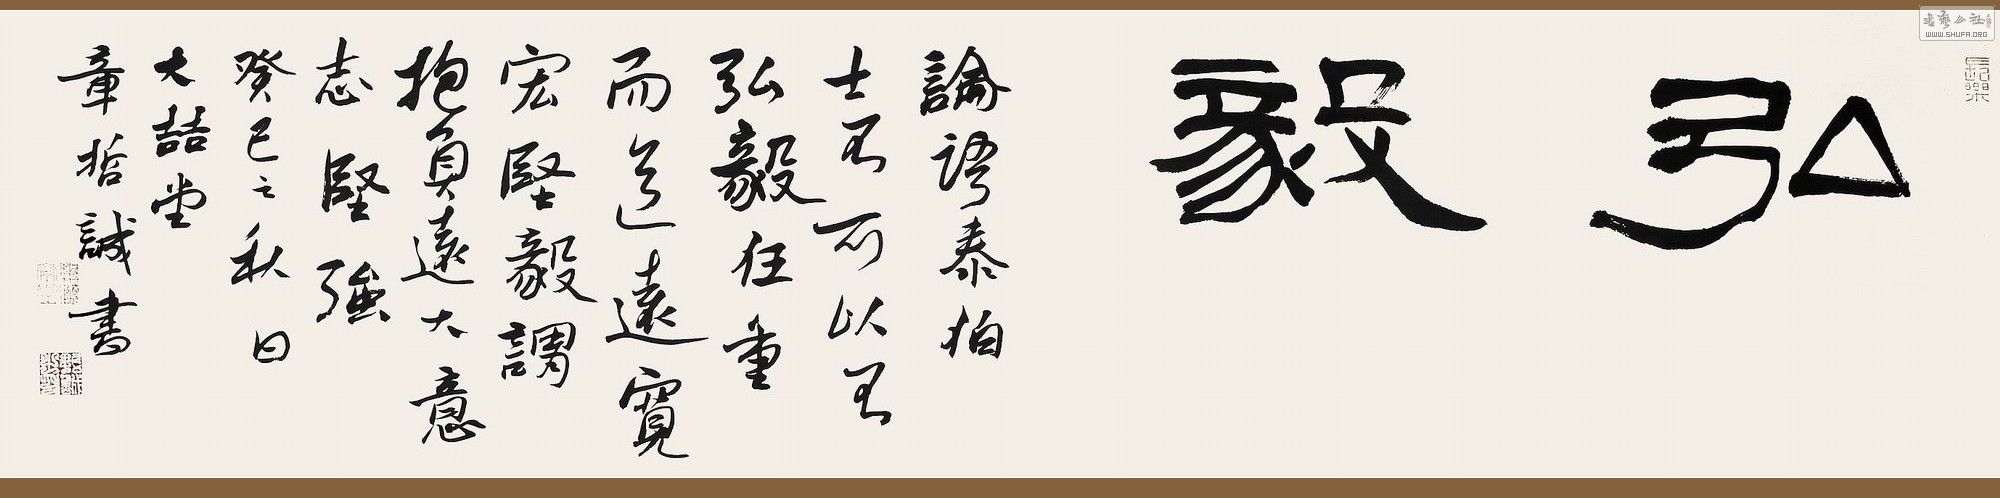 弘毅
論語泰伯
士不可以不
弘毅任重
而道遠寬
宏堅毅謂
抱負遠大意
志堅強
癸巳之秋日
大喆堂
章哲誠書
長樂
书艺公社
WWW.SHUFA.ORG